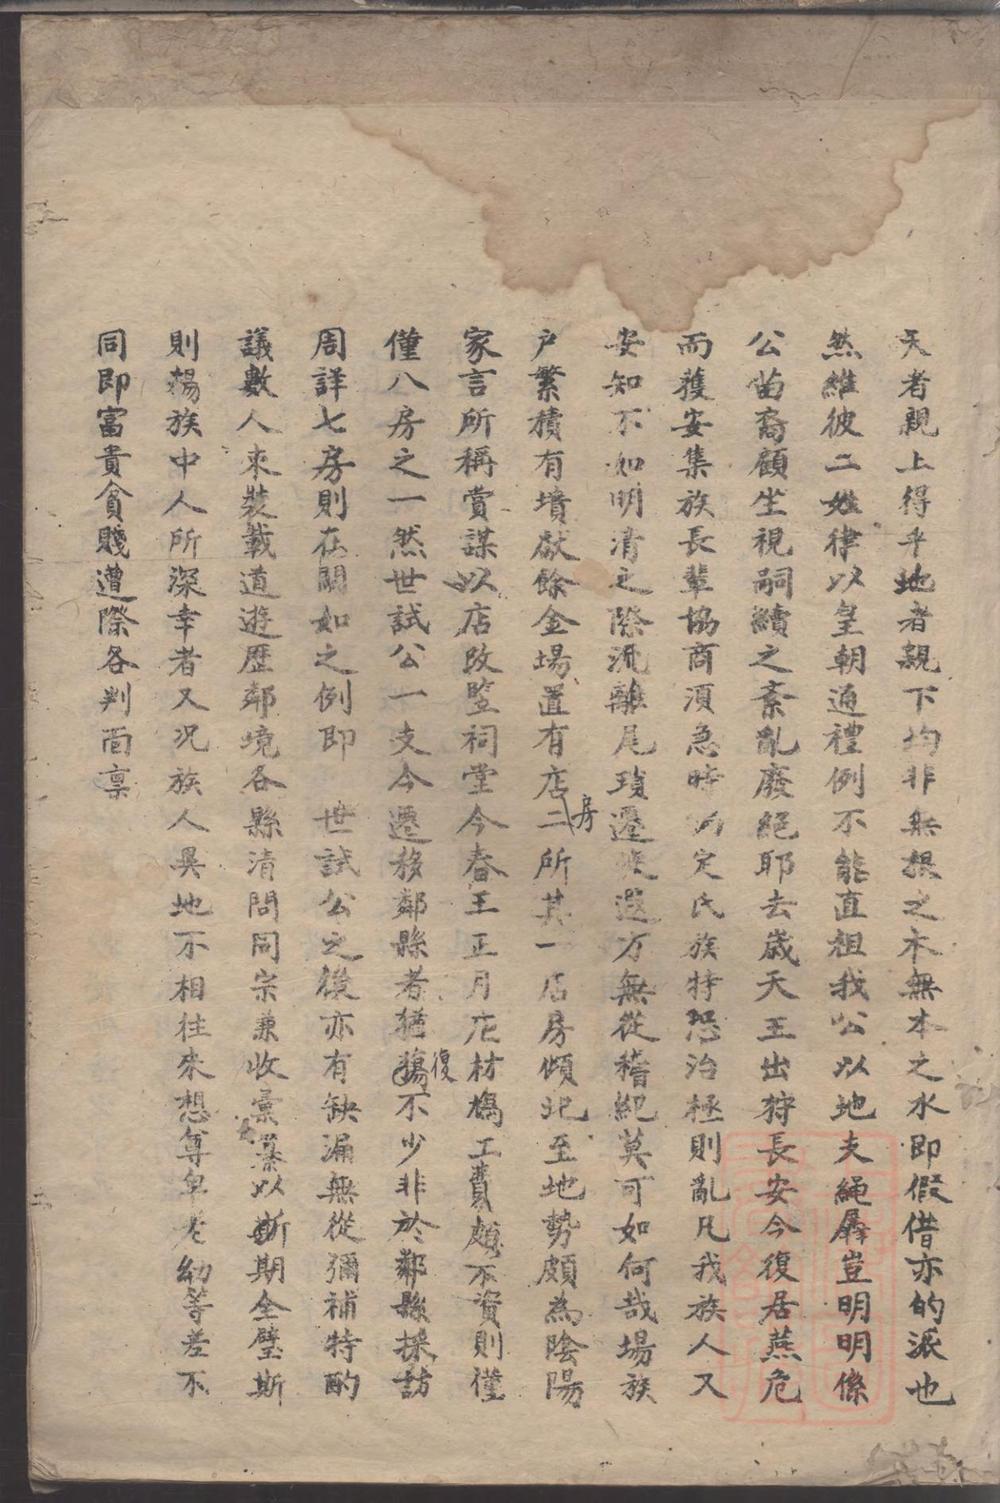 天者親上得乎地者親下均非無根之木無本之水即假借亦的派也
然維彼二姓律以皇朝通禮例不能直祖我公以地支繩孱豈明明係
公苗裔顧坐視嗣續之紊亂廢絕耶去歲天王出狩長安今復居燕危
而獲安集族長輩協商須急時定氏族特恐治極則亂凡我族人又
安知不如明清之際流離尾瑣遷遐方無從稽紀莫可如何哉場族
户繁積有墳嶽餘金場置有店房二所其一店房傾圮至地勢頗為陰陽
家言所稱賞謀以店改監祠堂今春王正月庀材鳩工費頗不資則僅
僅八房之一然世試公一支今遷移鄰縣者猶復不少非於鄰縣採訪
周詳七房則在闕如之例即 世試公之後亦有缺漏無從彌補特酌
議數人束裝載道遊歷鄰境各縣清問同宗兼收彙纂以斯期全璧斯
則楊族中人所深幸者又況族人異地不相往來想尊卑老幼等差不
同即富貴貧賤遭際各判面禀